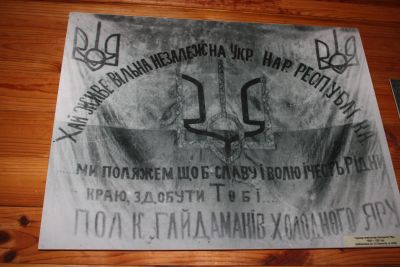 ХАЙ ЖИВЕ ВІЛЬНА НЕЗАЛЕЖНА УКР. НАР. РЕСПУБЛІКА
...МИ ПОЛЯЖЕМ ЩОБ СЛАВУ І ВОЛЮ І ЧЕСТЬ РІДНИЙ
КРАЮ, ЗДОБУТИ ТОБІ...
ПОЛК. ГАЙДАМАКІВ ХОЛОДНОГО ЯРУ